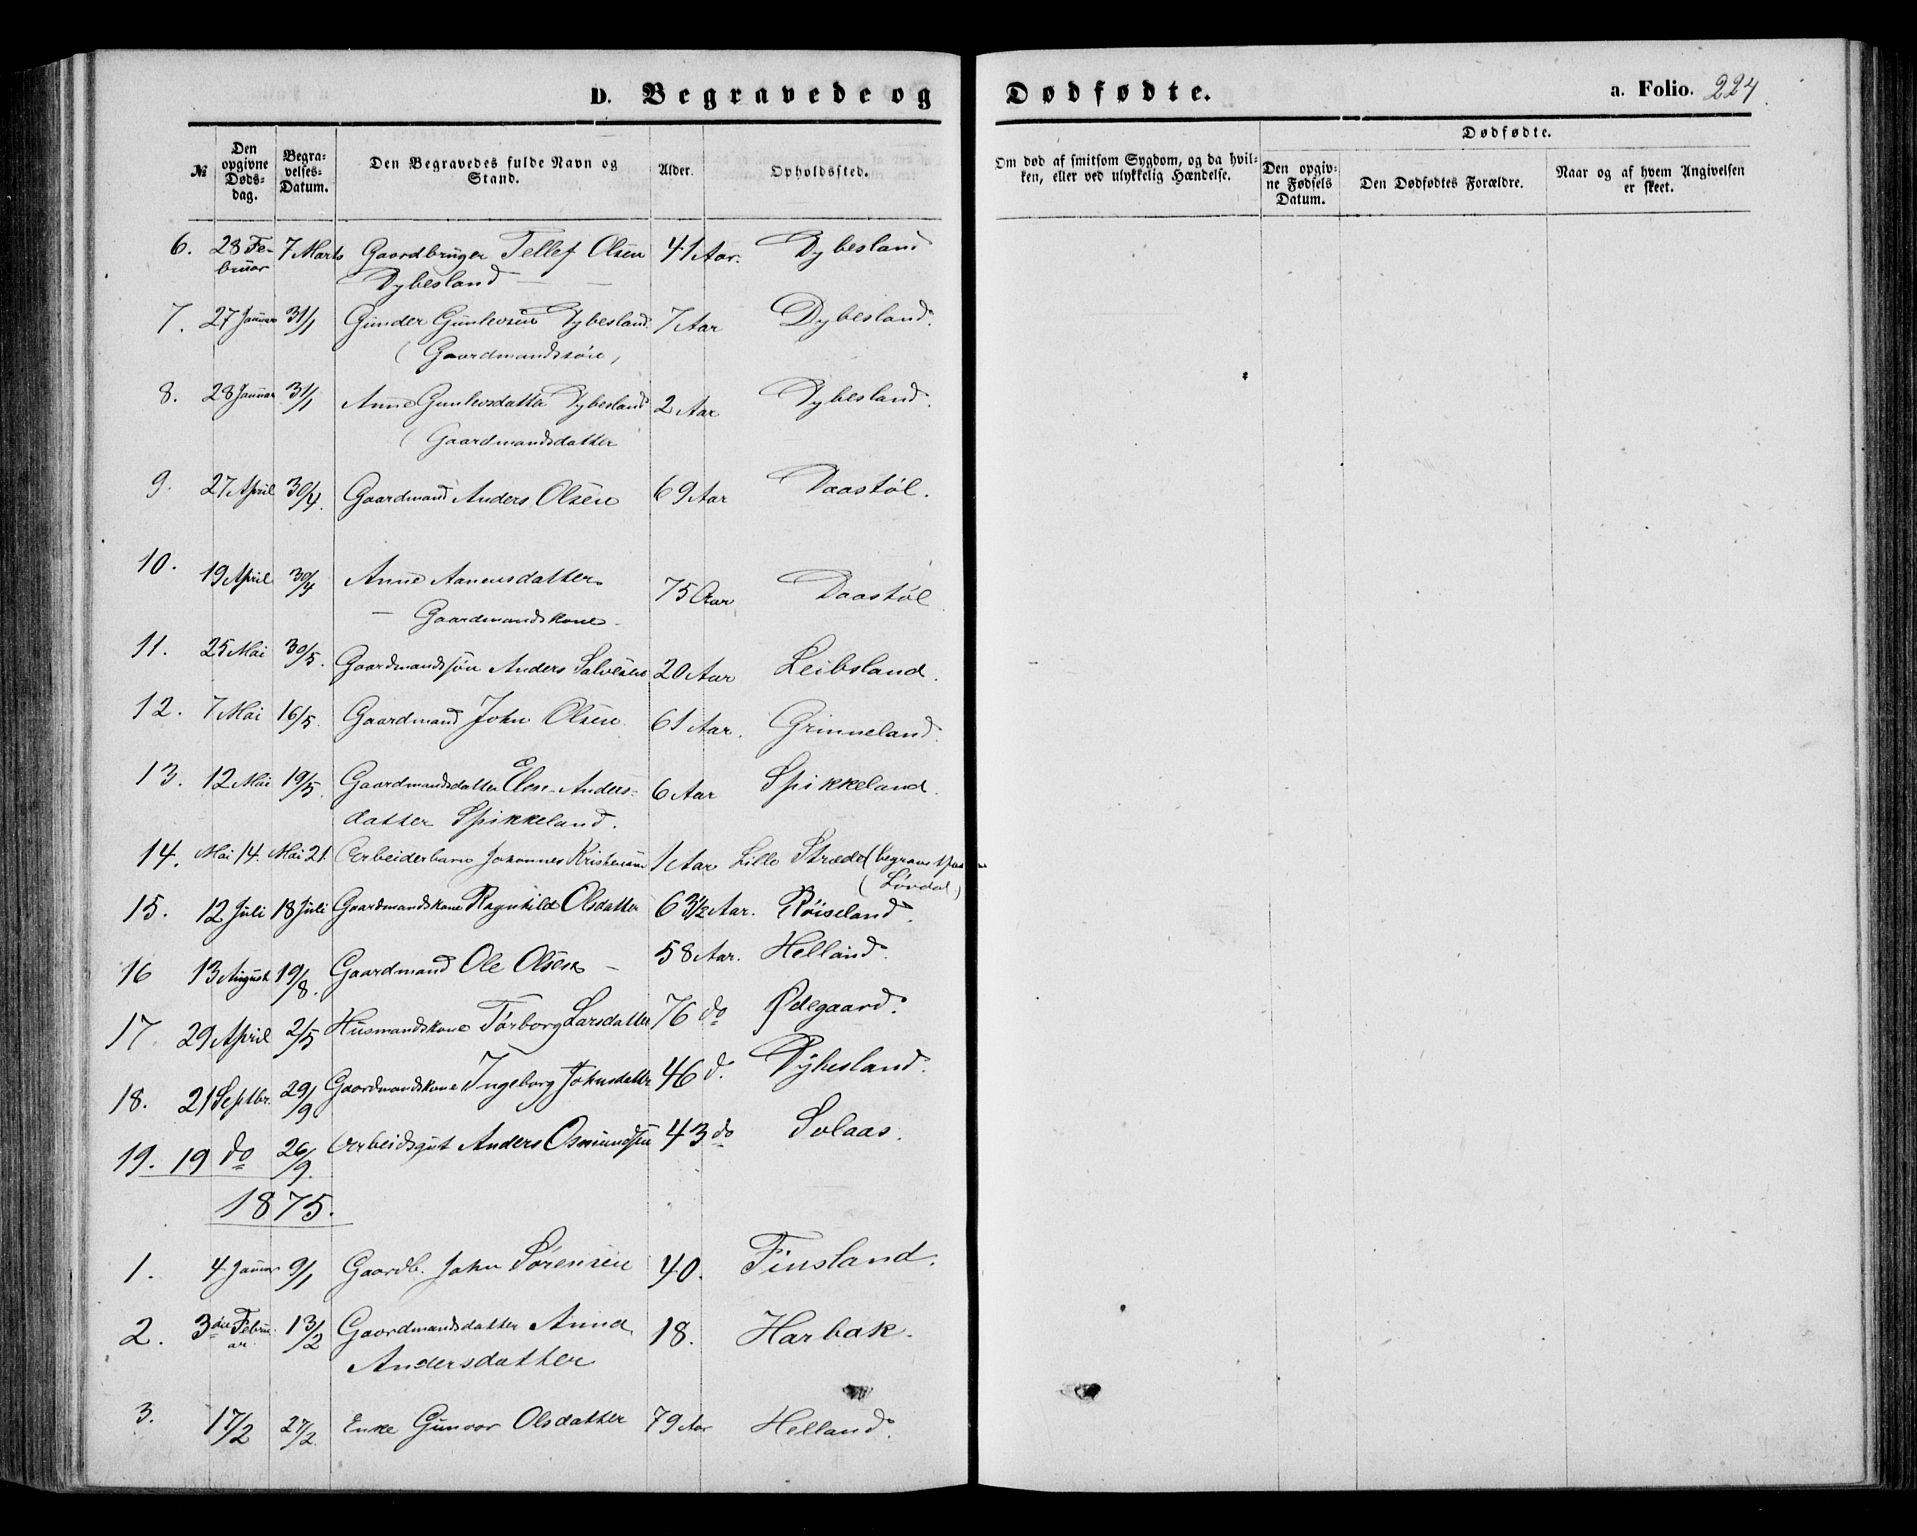 D. Begravede og Dødfødte. a. Folio. 224.
№ Den opgivne Døds-dag. Begra-velses-Datum. Den Begravedes fulde Navn og Stand. Alder. Opholdssted. Om død af smitsom Sygdom, og da hvil-ken, eller ved ulykkelig Hændelse. Dødfødte. Den opgiv-ne Fødsels Datum. Den Dødfødtes Forældre. Naar og af hvem Angivelsen er skeet.
6. 28 Fe- 7 Marts Gaardbruger Tellef Olsen 41 Aar. Dybesland
bruar Dybesland —
7. 27 Januar 31/1 Gunder Gunlevsen Dybesland 7 Aar Dybesland.
(Gaardmandssøn)
8. 28 Januar 31/1 Anne Gunlevsdatter Dybesland 2 Aar Dybesland.
(Gaardmandsdatter
9. 27 April 30/4. Gaardmand Anders Olsen 69 Aar Daastøl.
10. 19 April 30/4 Anne Aanensdatter 75 Aar Daastøl
— Gaardmandskone
11. 25 Mai 30/5. Gaardmandssøn Anders Salvesen 20 Aar Leibsland.
12. 7 Mai 16/5. Gaardmand John Olsen 61 Aar. Grinneland.
13. 12 Mai 19/5. Gaardmandsdatter Elen Anders- 6 Aar Spikkeland.
datter Spikkeland.
14. Mai 14. Mai 21. Arbeiderbarn Johannes Kristensen 1 Aar Lille Strædet (begravet paa
(Løvdal)
15. 12 Juli 18 Juli Gaardmandskone Ragnhild Olsdatter 63 1/2 Aar. Røiseland.
16 13 August 19/8. Gaardmand Ole Olsen — 58 Aar. Helland.
17. 29 April 2/5 Husmandskone Torborg Larsdatter 76 do Ødegaard.
18. 21 Septbr. 29/9 Gaardmandskone Ingeborg Johnsdattr 46 d. Dybesland.
19. 19 do 26/9. Arbeidsgut Anders Osmundsen 43 do Solaas.
1875.
1. 4 Januar 9/1 Gaardb. John Sørensen 40. Finsland.
2. 3die Febru- 13/2 Gaardmandsdatter Anna 18. Harbak.
ar. Andersdatter
3. 17/2 27/2. Enke Gunvor Olsdatter 79 Aar Helland.